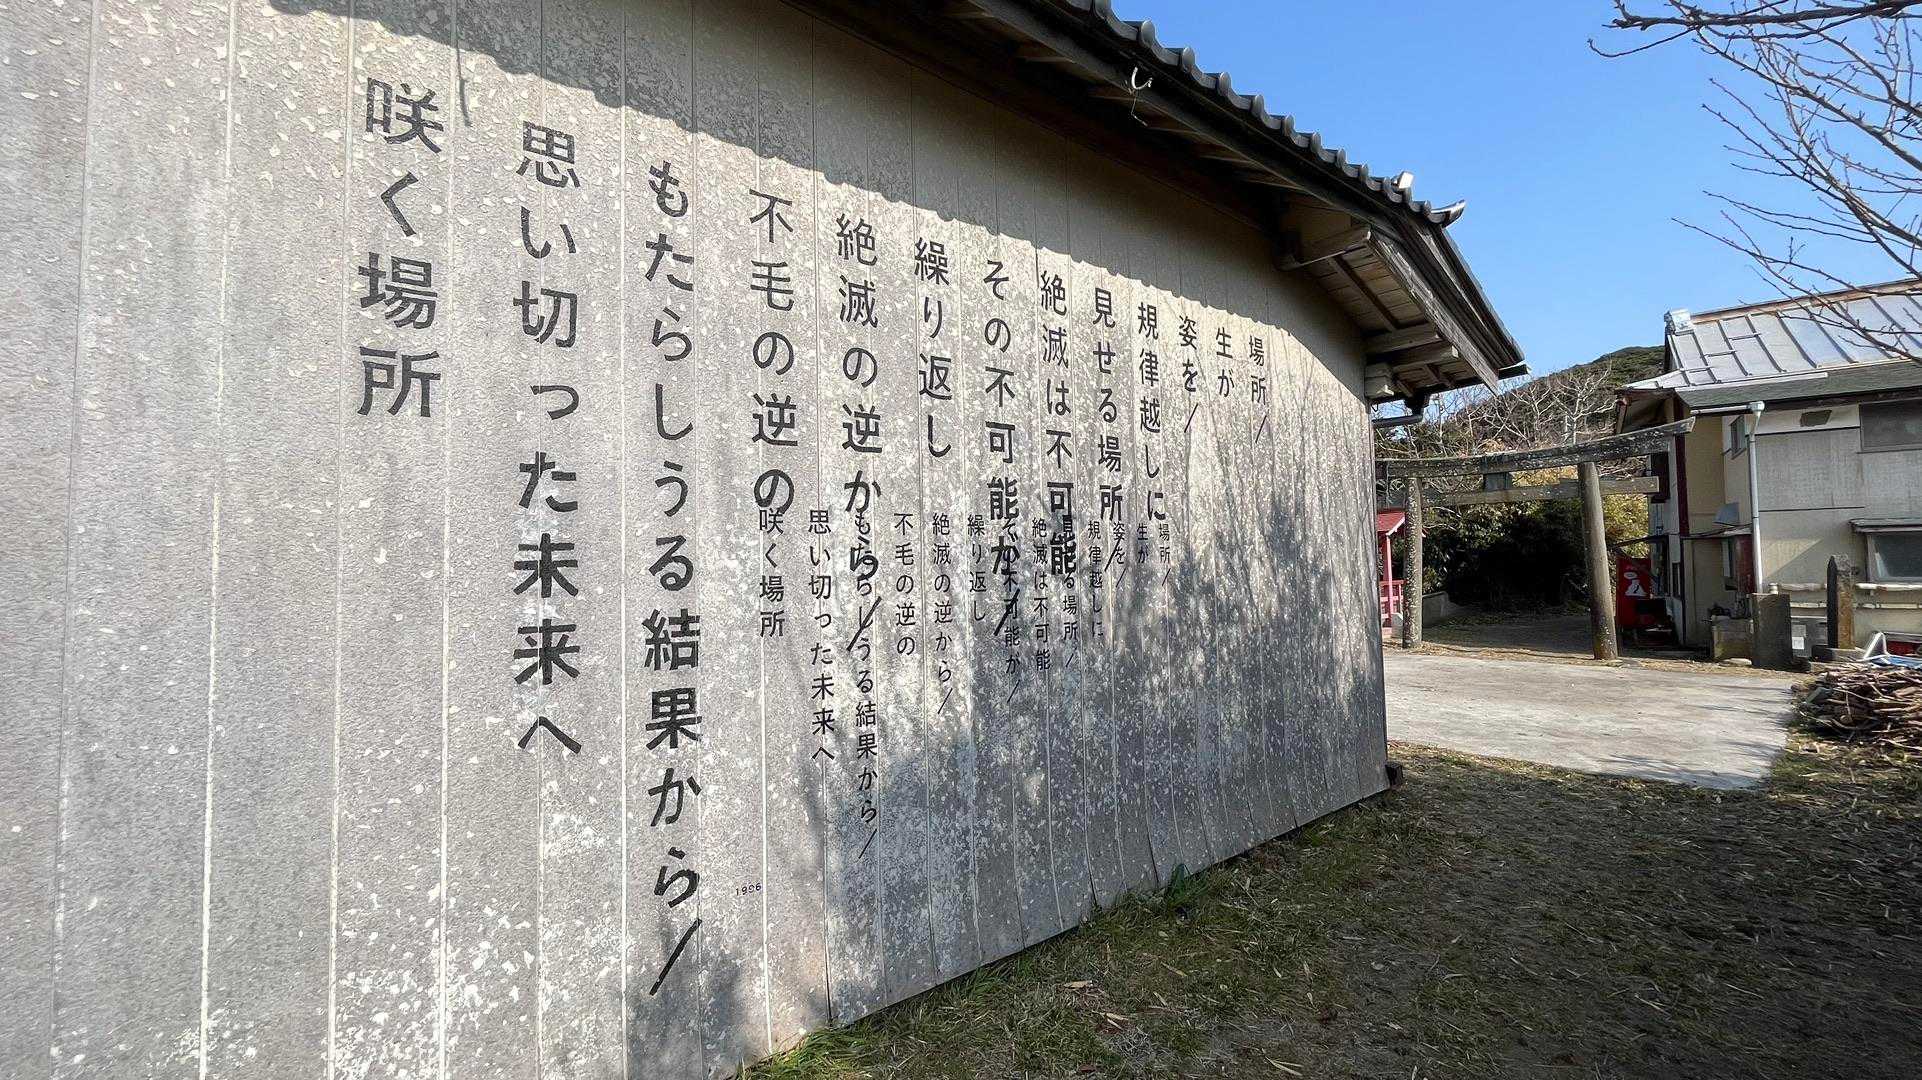 場所／
生が
姿を／
規律越しに
見せる場所／
絶滅は不可能
その不可能が／
繰り返し
絶滅の逆から／
不毛の逆の
もたらしうる結果から／
思い切った未来へ
咲く場所
場所／
生が
姿を／
規律越しに
見せる場所／
絶滅は不可能
その不可能が／
繰り返し
絶滅の逆から／
不毛の逆の
もたらしうる結果から／
思い切った未来へ
咲く場所
1996